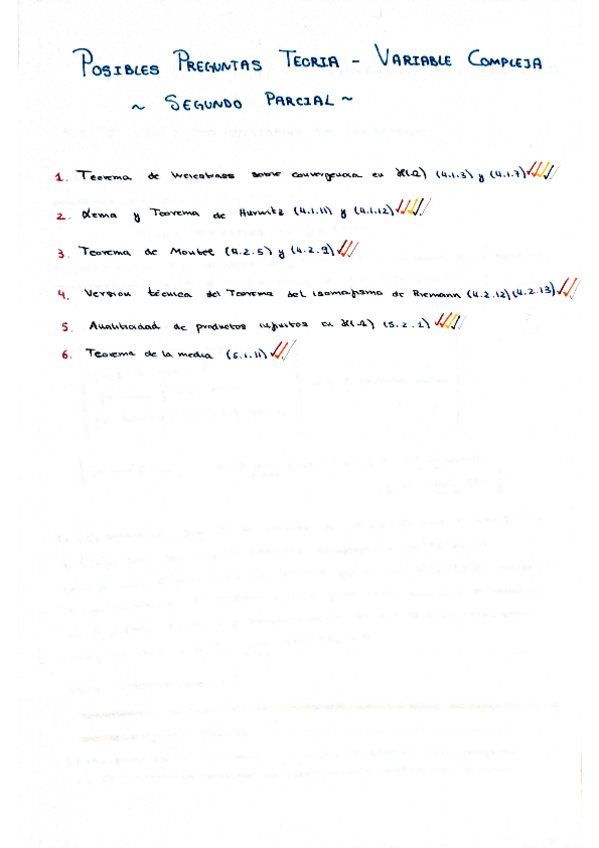 POSIBLES PREGUNTAS TEORIA - VARIABLE COMPLEJA
~ SEGUNDO PARCIAL ~
1. Teorema de Weierstrass sobre convergencia en H(Ω) (4.1.3) y (4.1.7)
2. Lema y Teorema de Hurwitz (4.1.11) y (4.1.12)
3. Teorema de Montel (4.2.5) y (4.2.9)
4. Versión técnica del Teorema del isomorfismo de Riemann (4.2.12) (4.2.13)
5. Analiticidad de productos infinitos en H(Ω) (5.2.2)
6. Teorema de la media (6.1.11)